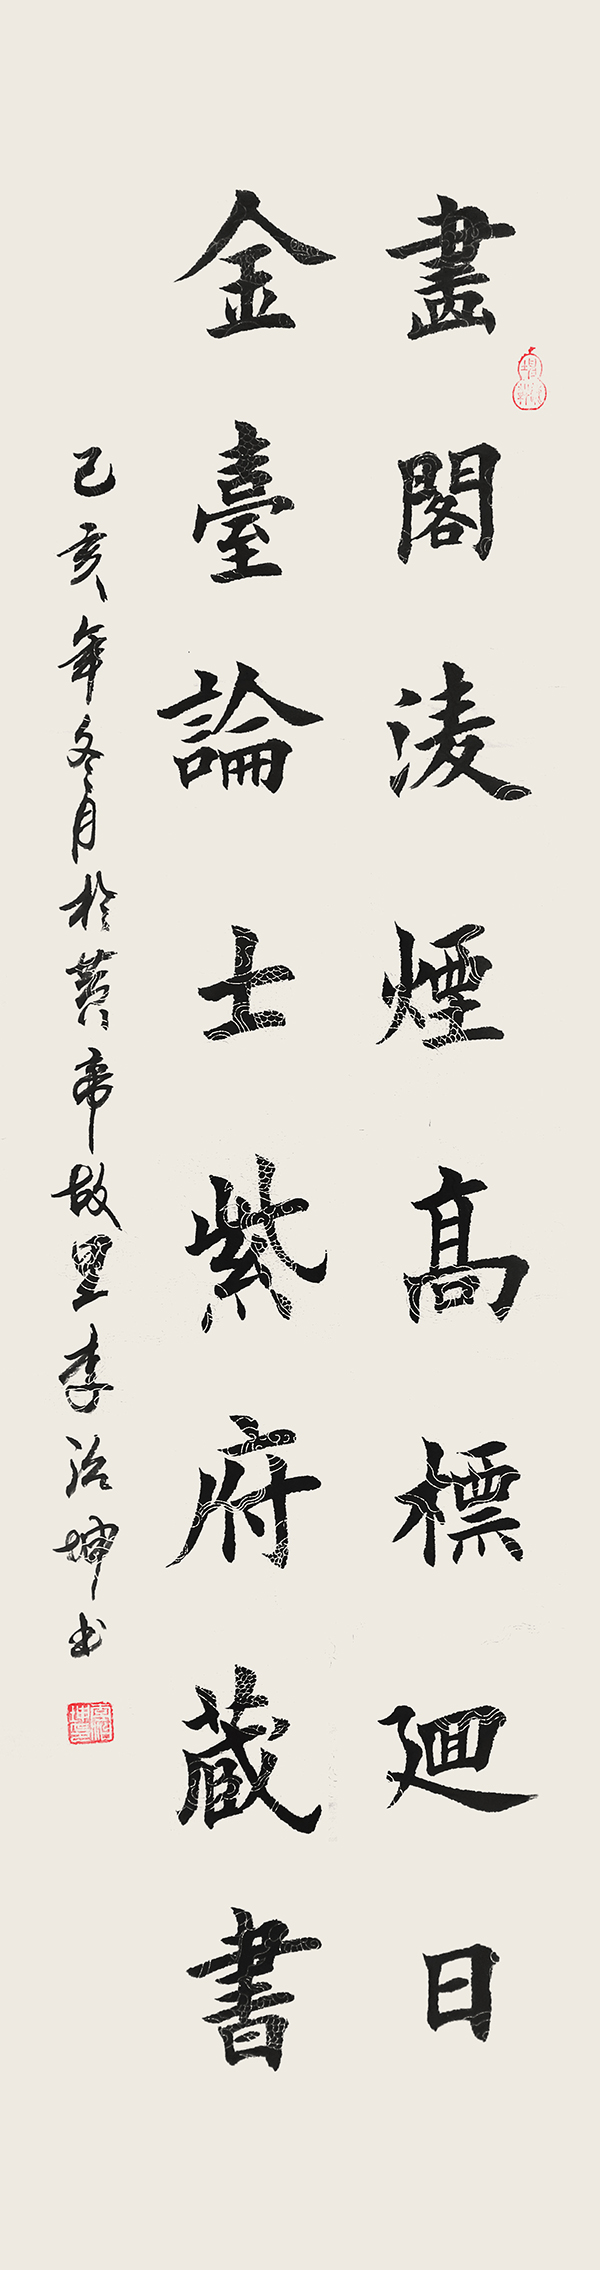 畫閣淩煙高標迴日
金臺論士紫府蔵書
己亥年冬月於黄帝故里李治坤书